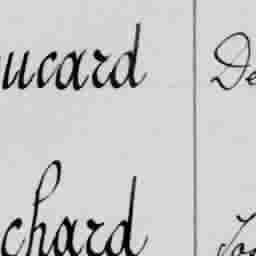 ucard De
chard